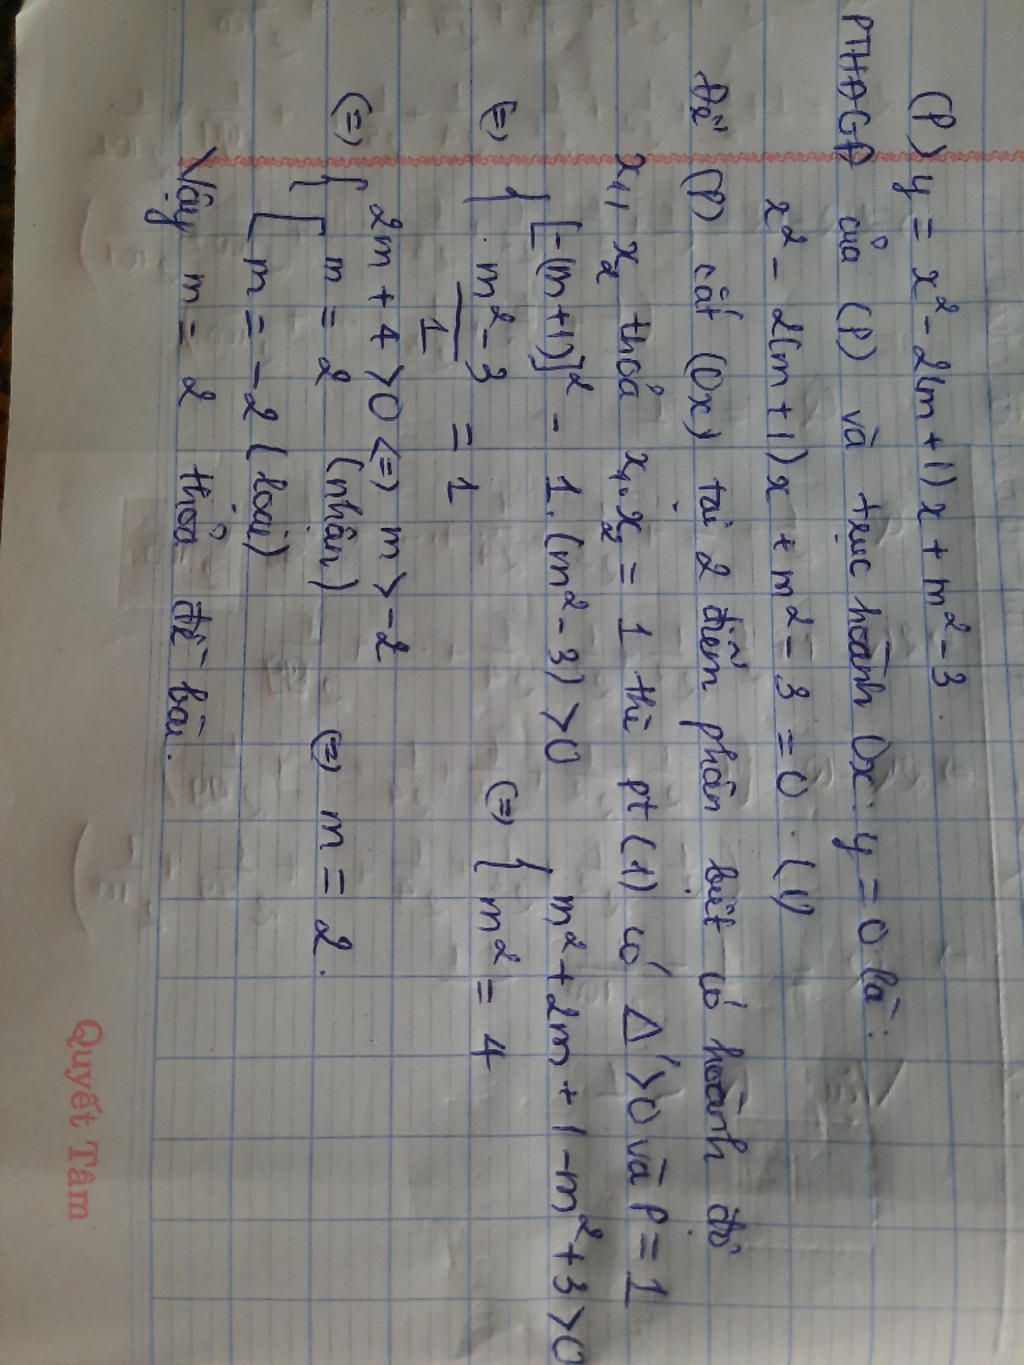 (P) y = x² - 2(m + 1)x + m² - 3
PTHĐGĐ của (P) và trục hoành Ox: y = 0 là:
x² - 2(m + 1)x + m² - 3 = 0. (1)
Để (P) cắt (Ox) tại 2 điểm phân biệt có hoành độ
x₁, x₂ thoả x₁.x₂ = 1 thì pt (1) có Δ' > 0 và P = 1
(=) { [-(m+1)]² - 1.(m² - 3) > 0 (=) { m² + 2m + 1 - m² + 3 > 0
(m² - 3)/1 = 1 m² = 4
(=) { 2m + 4 > 0 <=> m > -2
[ m = 2 (nhận) (=) m = 2.
m = -2 (loại)
Vậy m = 2 thoả đề bài.
Quyết Tâm